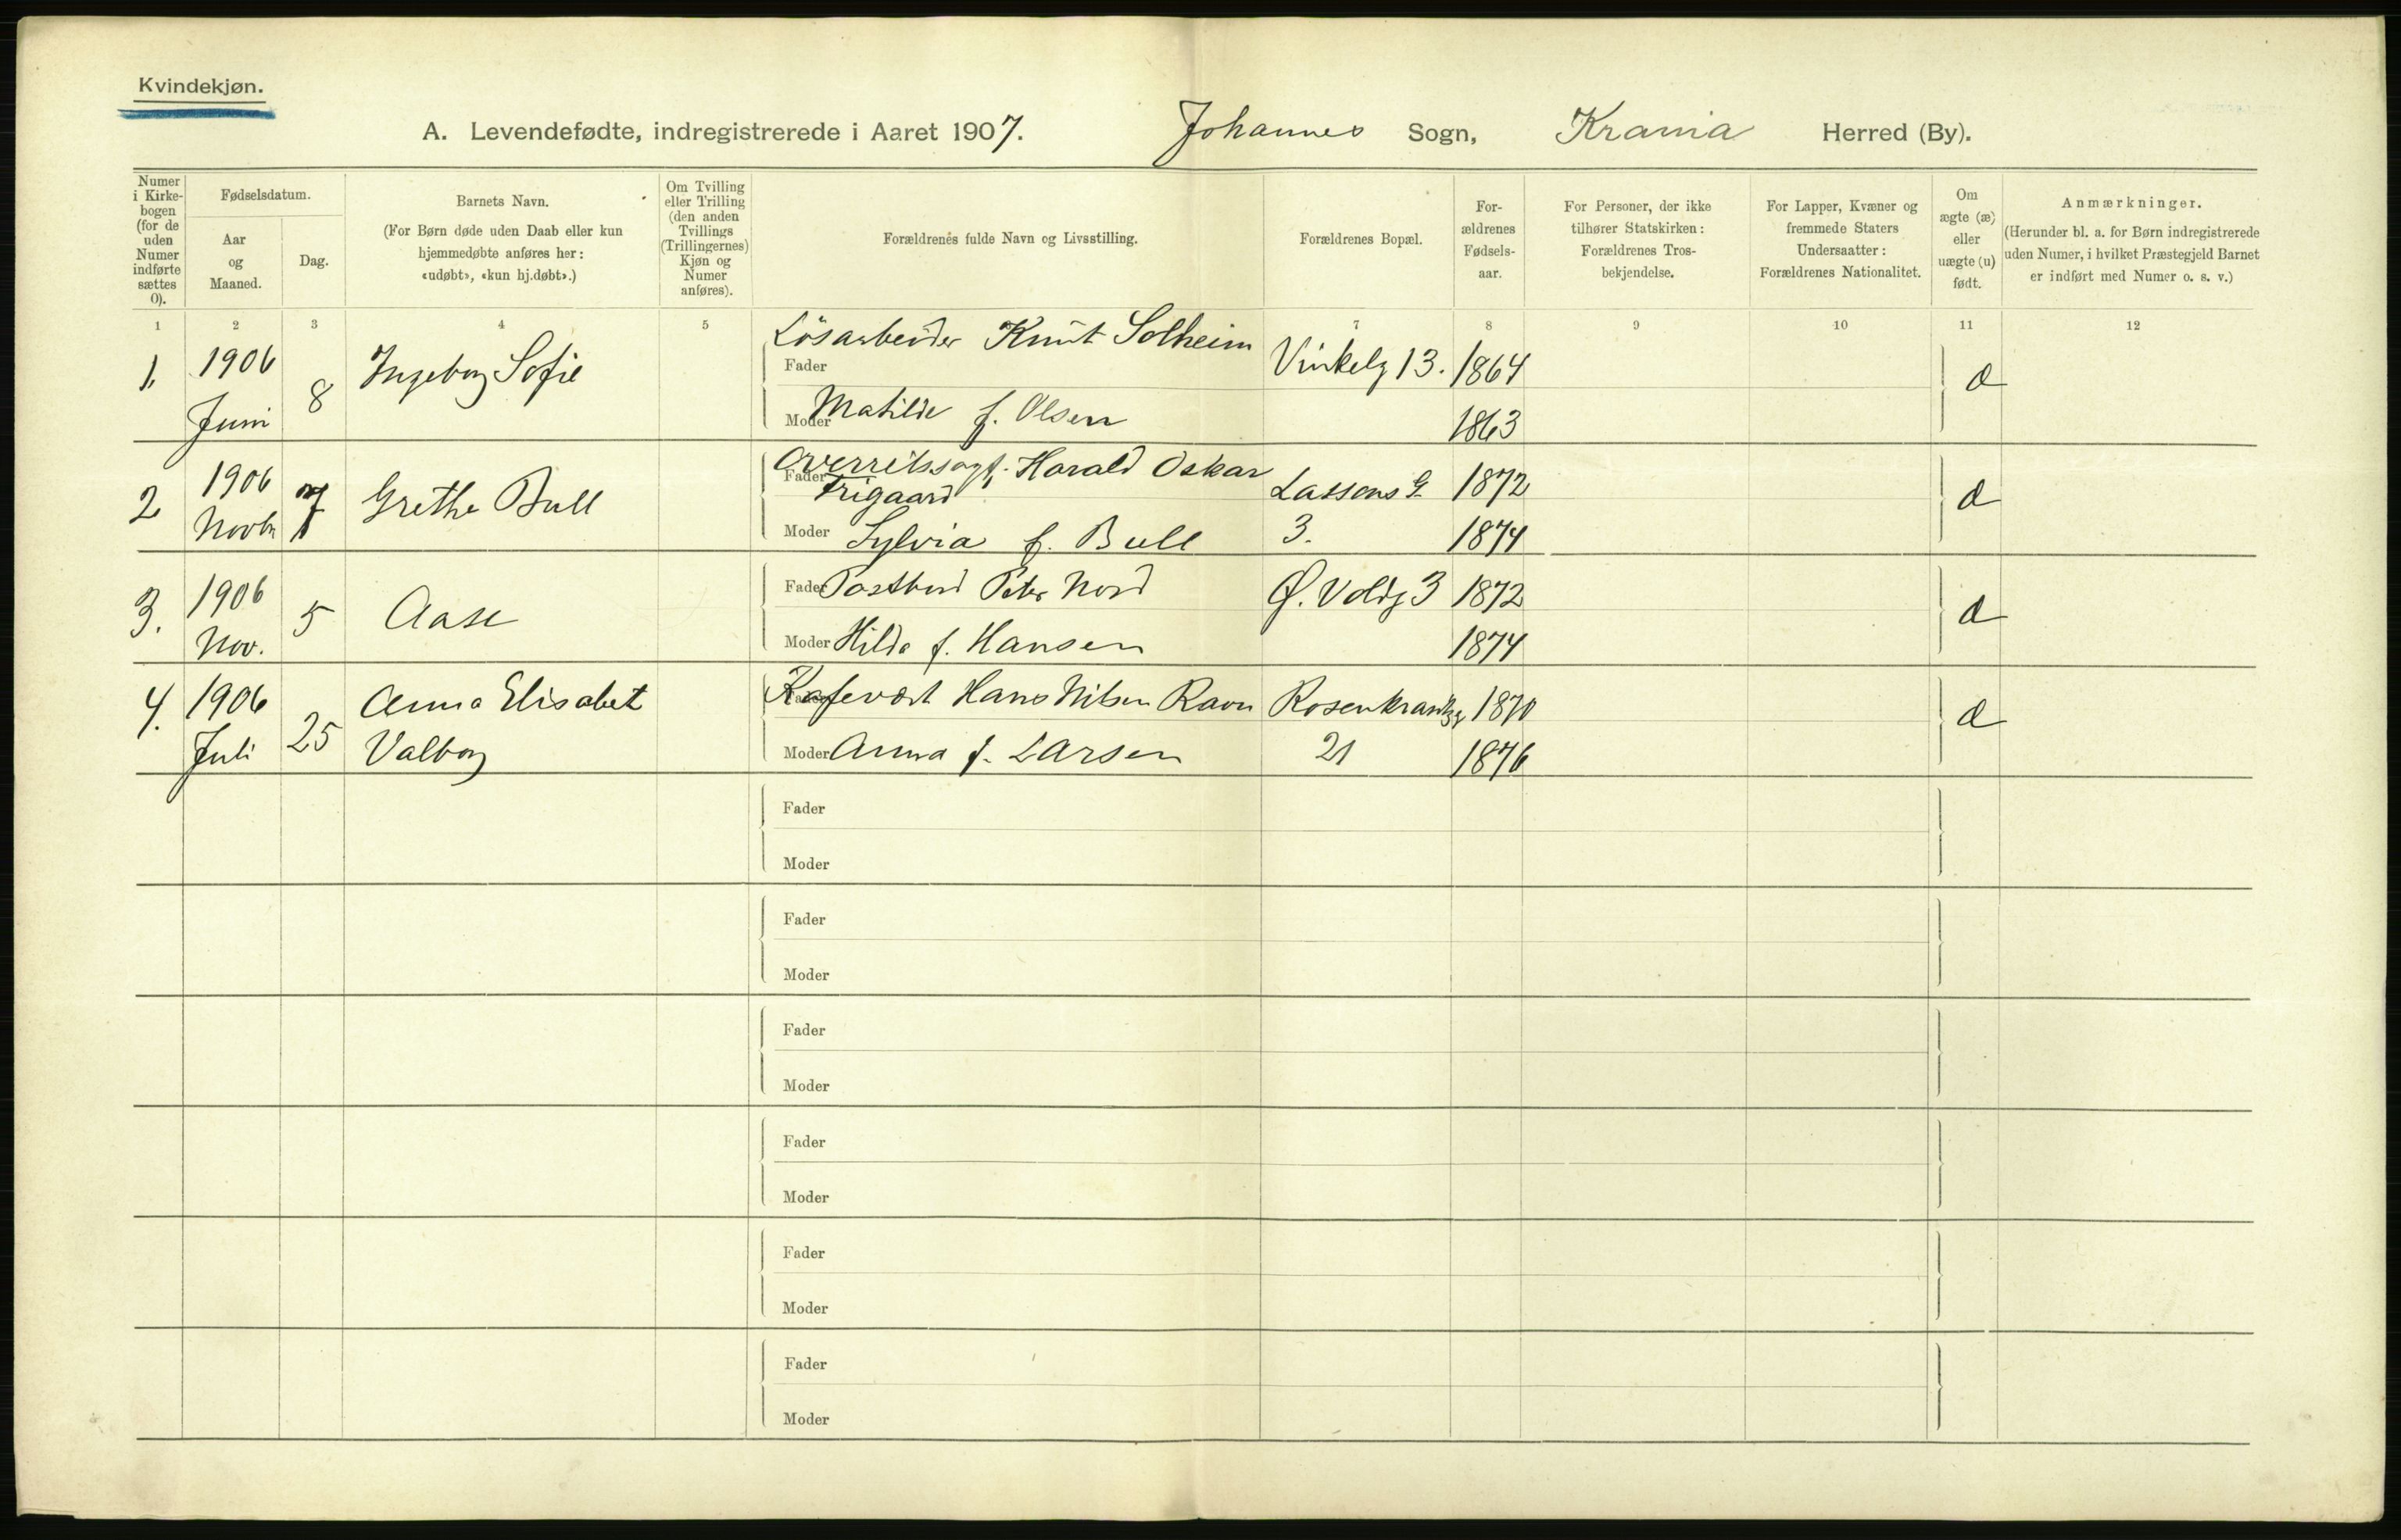 Kvindekjøn.
A. Levendefødte, indregistrerede i Aaret 1907. Johannes Sogn, Krania Herred (By).
Numer i Kirkebogen (for de uden Numer indførte sættes 0).
Fødselsdatum.
Aar og Maaned.
Dag.
Barnets Navn.
(For Børn døde uden Daab eller kun hjemmedøbte anføres her: «udøbt», «kun hj.døbt».)
Om Tvilling eller Trilling (den anden Tvillings (Trillingernes) Kjøn og Numer anføres).
Forældrenes fulde Navn og Livsstilling.
Forældrenes Bopæl.
Forældrenes Fødselsaar.
For Personer, der ikke tilhører Statskirken: Forældrenes Trosbekjendelse.
For Lapper, Kvæner og fremmede Staters Undersaatter: Forældrenes Nationalitet.
Om ægte (æ) eller uægte (u) født.
Anmærkninger.
(Herunder bl. a. for Børn indregistrerede uden Numer, i hvilket Præstegjeld Barnet er indført med Numer o. s. v.)
1 2 3 4 5 7 8 9 10 11 12
1. 1906 Juni 8 Ingeborg Sofie
Fader Løsarbeider Knut Solheim Vinkelg 13. 1864 æ
Moder Matilde f. Olsen 1863
2 1906 Novbr 7 Grethe Bull
Fader Overretssagf. Harald Oskar Frigaard Lassons G. 3. 1872 æ
Moder Sylvia f. Bull 1874
3. 1906 Nov. 5 Aase
Fader Postbud Peter Nord Ø. Voldg 3 1872 æ
Moder Hilda f. Hansen 1874
4. 1906 Juli 25 Anna Elisabet Valborg
Fader Kafevært Hans Nilsen Ravn Rosenkrantzg 21 1870 æ
Moder Anna f. Larsen 1876
Fader
Moder
Fader
Moder
Fader
Moder
Fader
Moder
Fader
Moder
Fader
Moder